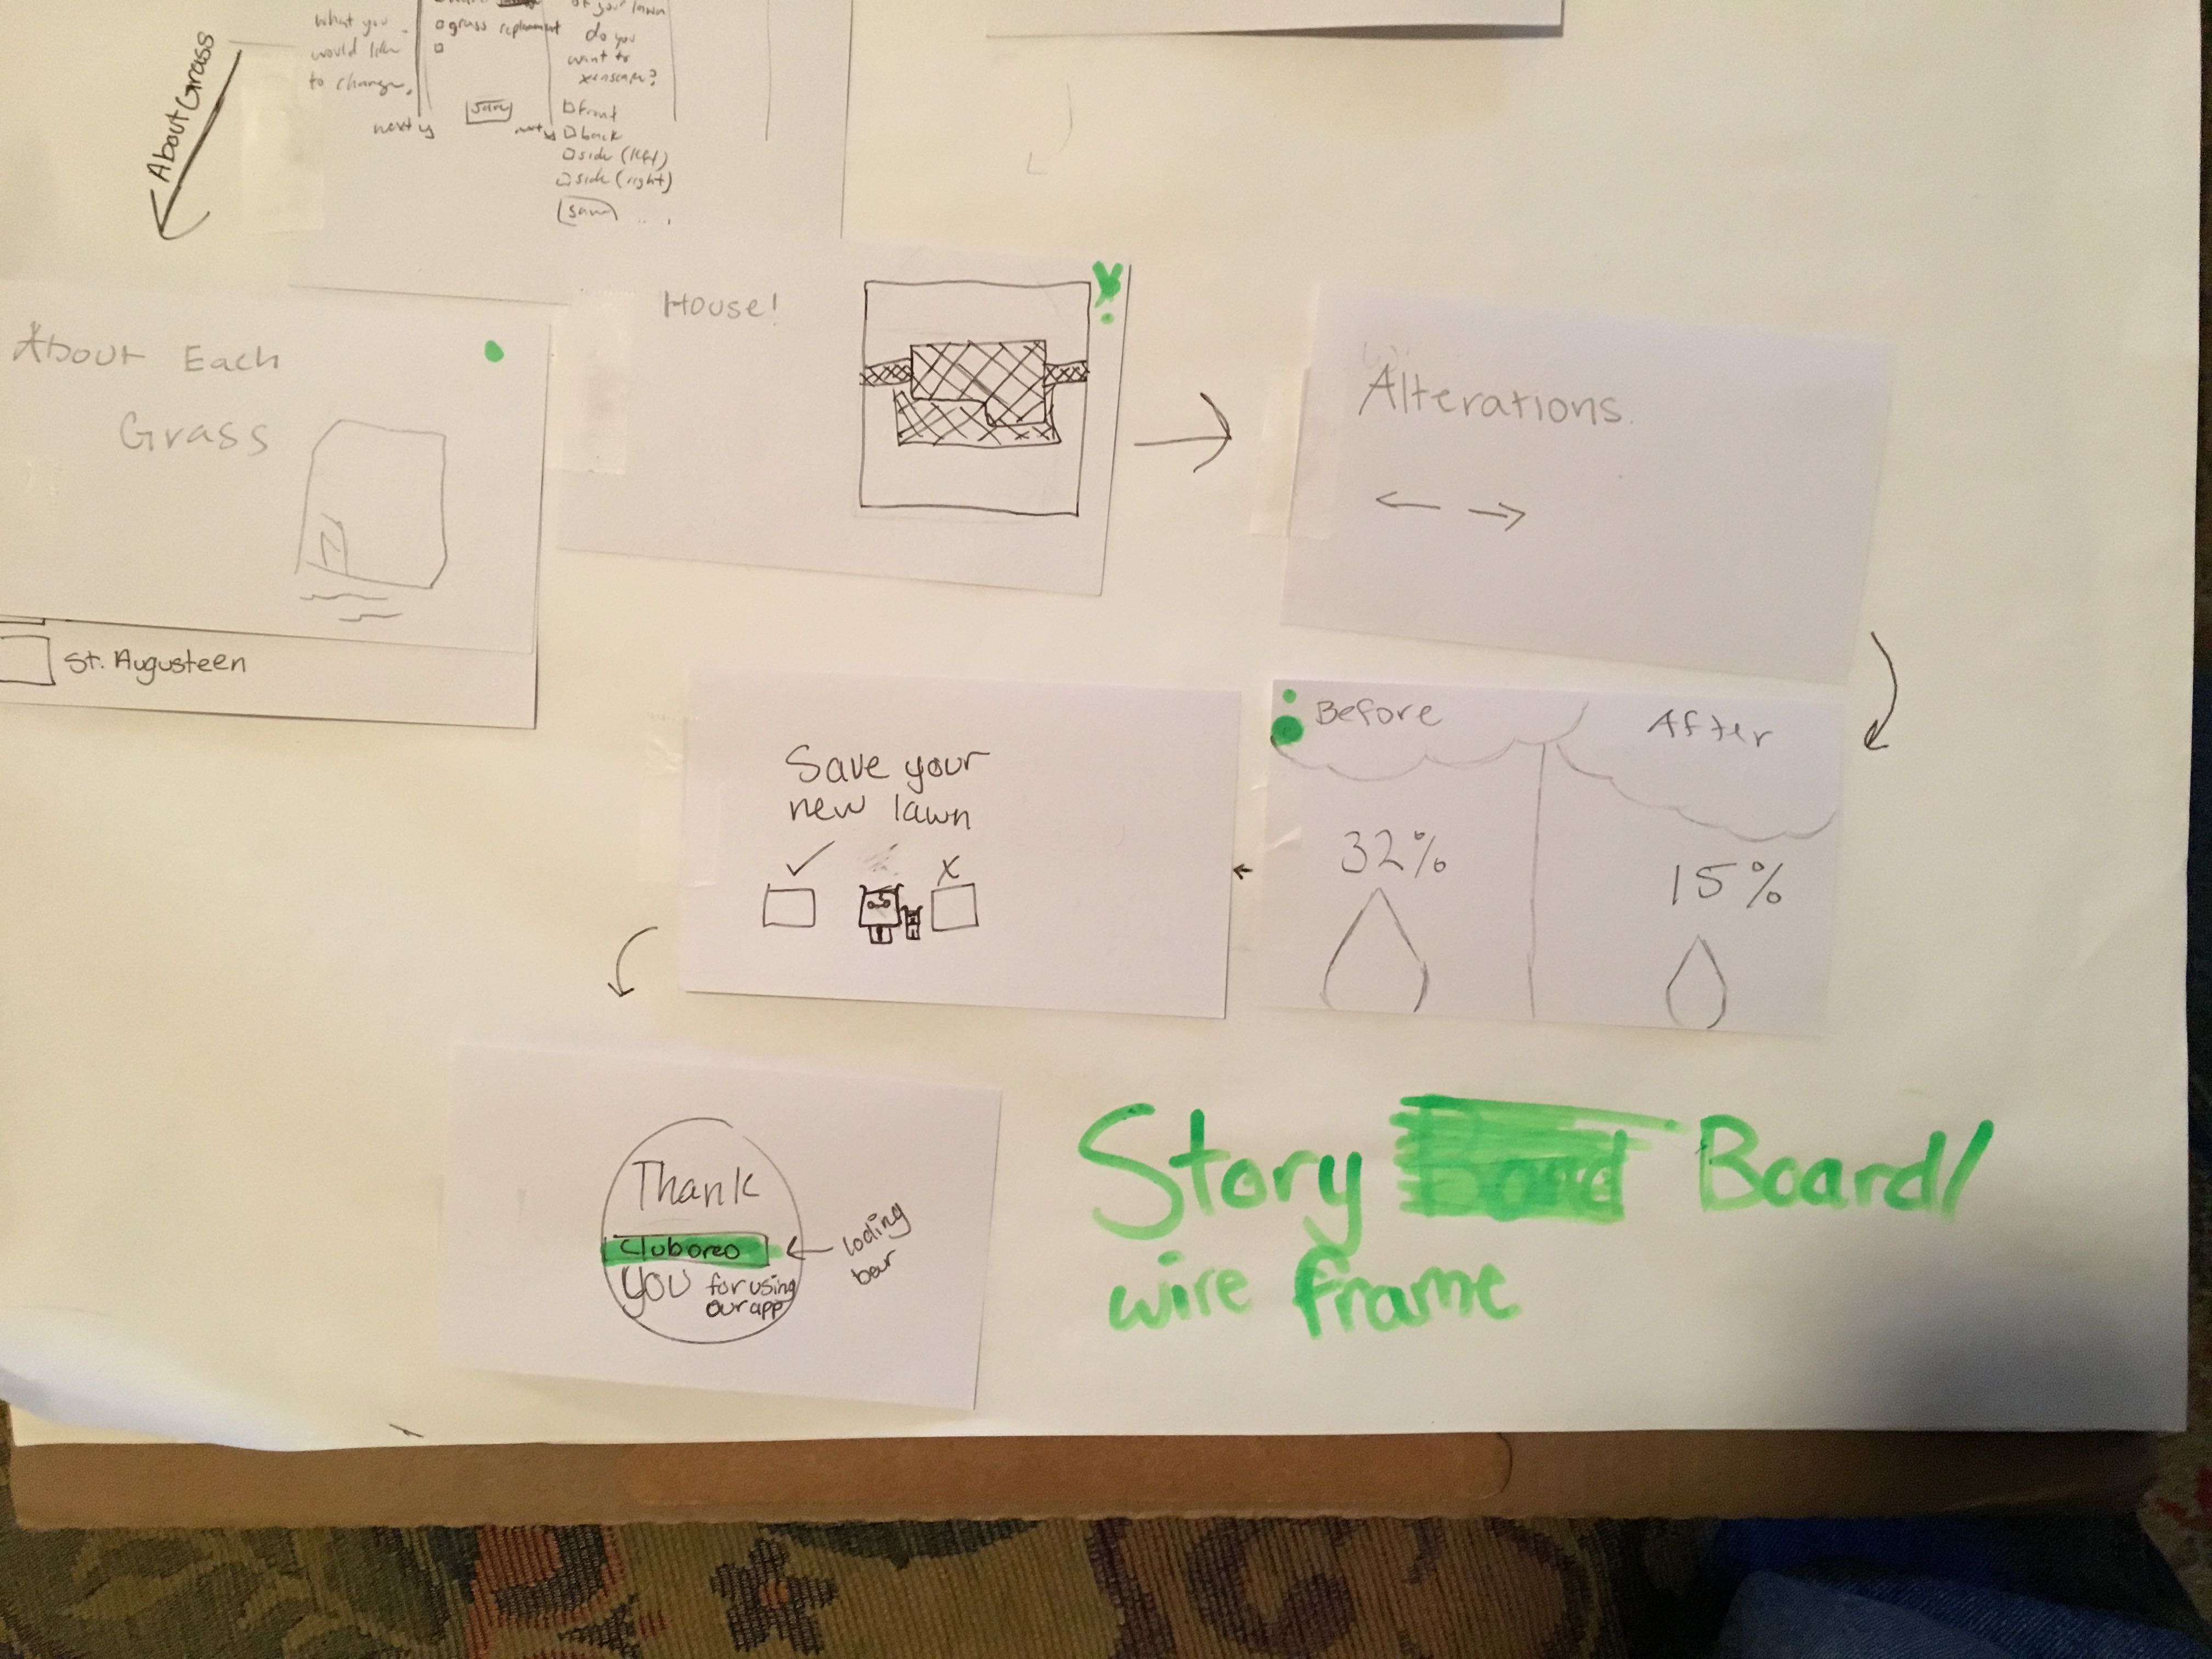 About Grass
what you
would like
to change.
next
grass replacment
save
of your lawn
do you
want to
xeriscape?
front
back
side (left)
side (right)
save
About Each
Grass
St. Augusteen
House!
Alterations.
Before
After
32%
15%
Save your
new lawn
✓ X
Thank
cluboreo
you for using
our app
loding
bar
Story Board/
wire frame